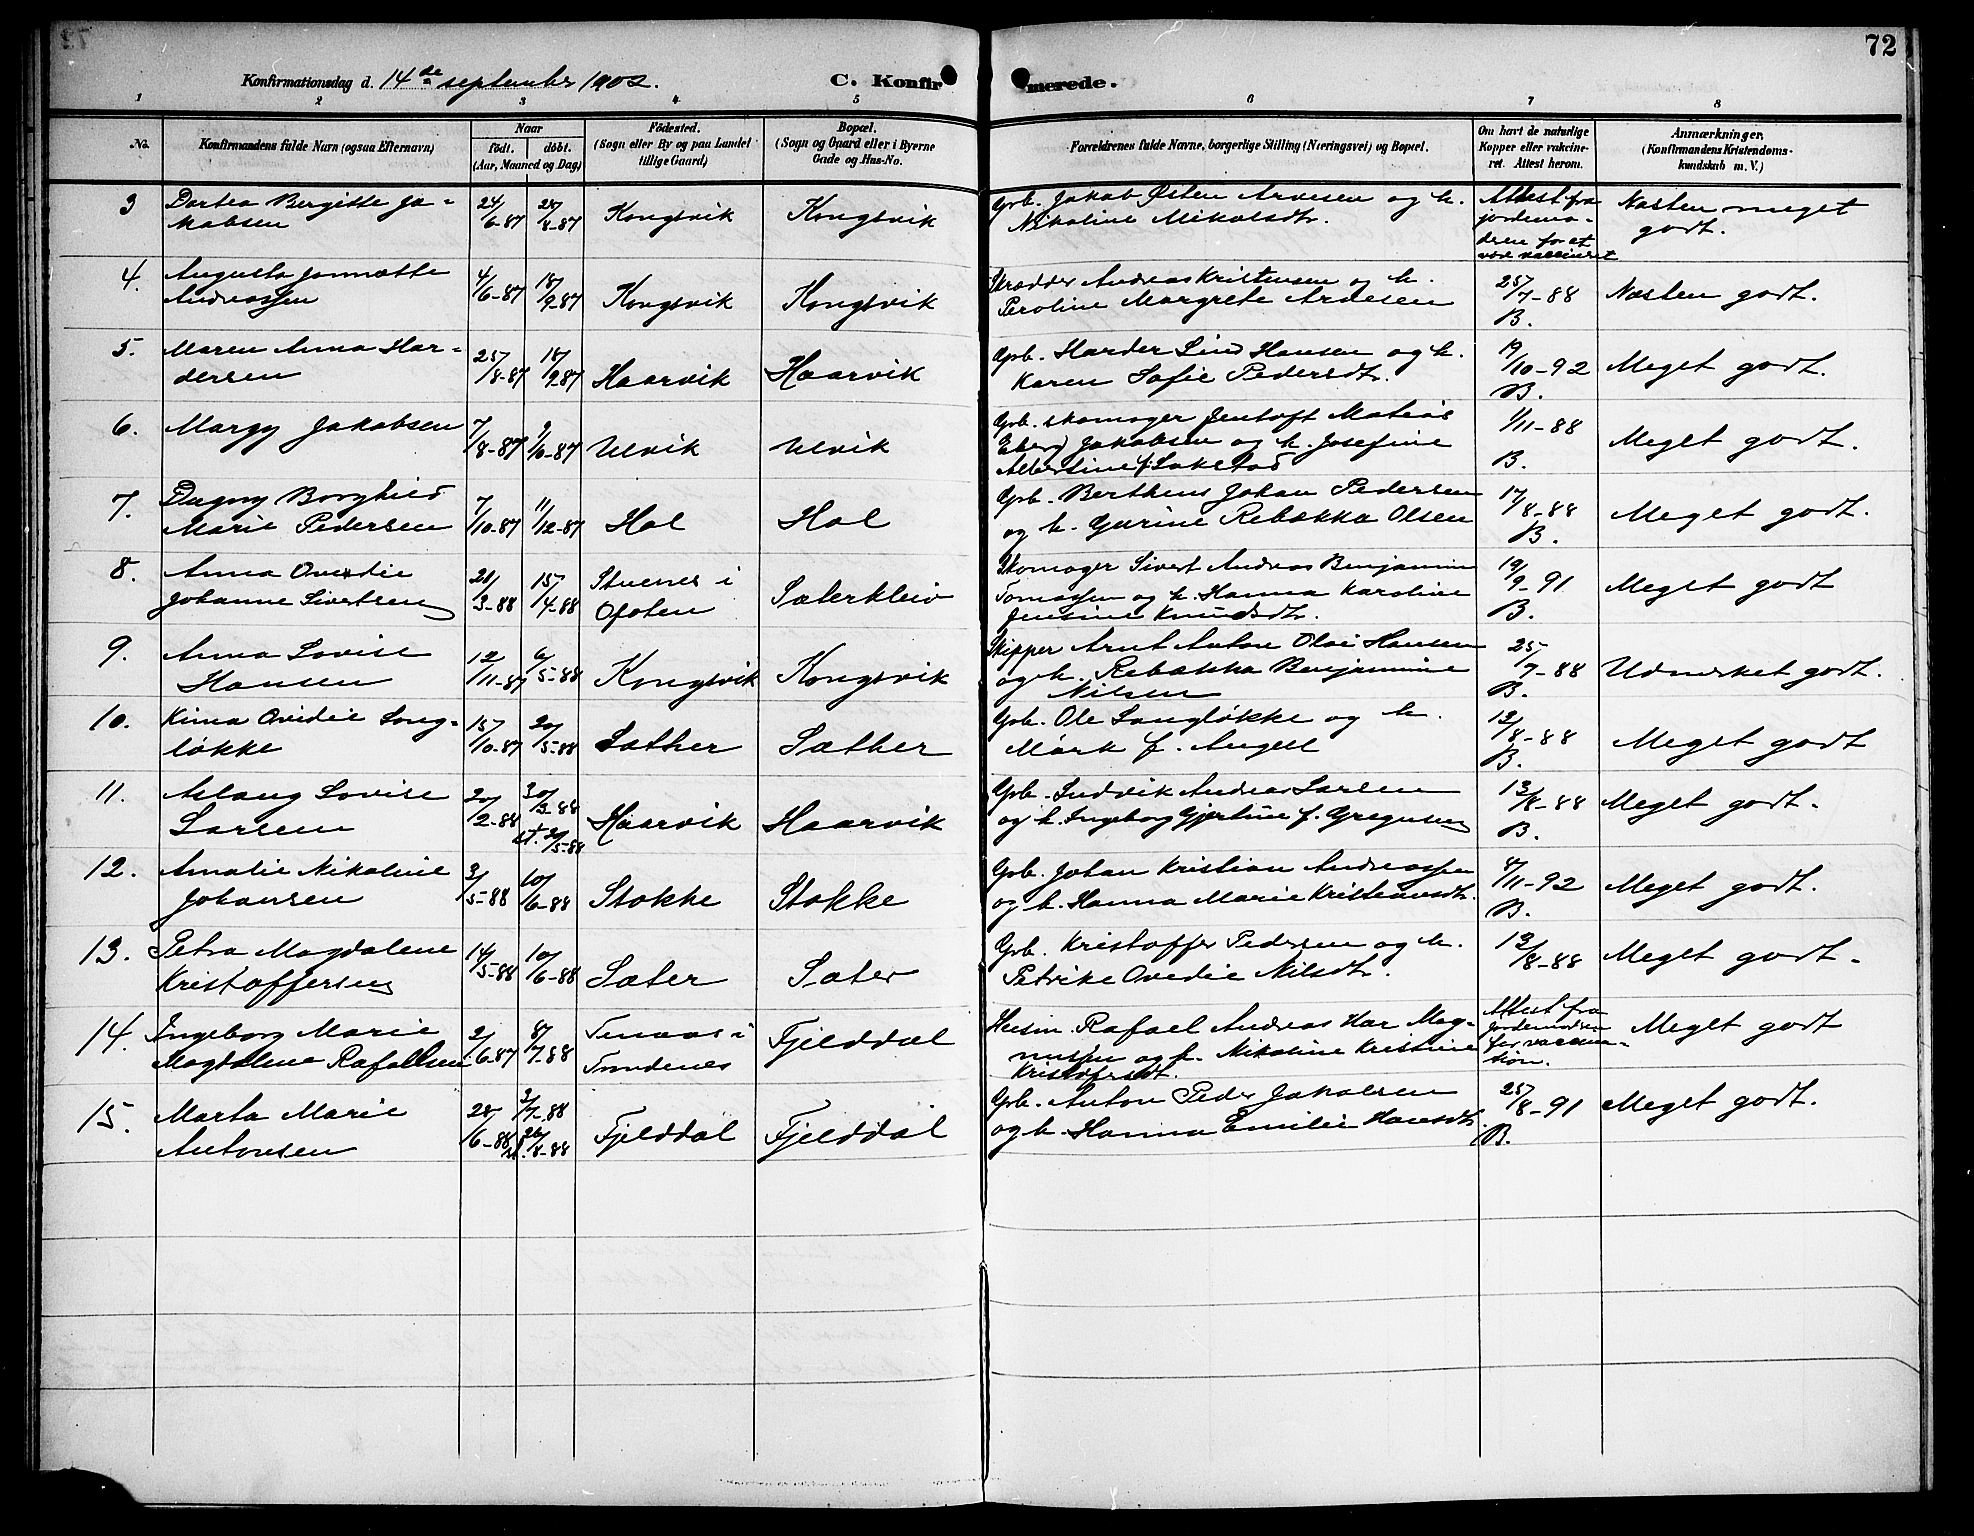 72
Konfirmationsdag d. 14de september 1902.
C. Konfirmerede.
1 2 3 4 5 6 7 8
No.
Konfirmandens fulde Navn (ogsaa Efternavn)
Naar
født. døbt.
(Aar, Maaned og Dag)
Fødested.
(Sogn eller By og paa Landet
tillige Gaard)
Bopæl.
(Sogn og Gaard eller i Byerne
Gade og Hus-No.
Forældrenes fulde Navne, borgerlige Stilling (Næringsvei) og Bopæl.
Om havt de naturlige
Kopper eller vakcine-
ret. Attest herom.
Anmærkninger,
(Konfirmandens Kristendoms-
kundskab m. V.)
3 Dortea Bergitte Ja-
kobsen
24/6-87 28/8-87 Kongsvik Kongsvik
Grb. Jakob Østen Arnesen og h.
Nikoline Mikalsdtr.
Attest fra
jordemo-
deren for at
være vaccineret
Næsten meget
godt.
4. Augusta Jonnætte
Andreassen
4/6-87 18/9-87 Kongsvik Kongsvik
Skrædder Andreas Kristensen og h.
Peroline Margrete Andesen
25/7-88
B.
Næsten godt.
5. Maren Anna Har-
dersen
25/8-87 18/9.87 Haarvik Haarvik
Grb. Harder Lind Hansen og h.
Karen Sofie Pedersdtr.
19/10-92
B.
Meget godt.
6. Margy Jakobsen
7/8-87 9/10-87 Ulvik Ulvik
Grb. skomager Jentoft Matias
Eberg Jakobsen og h. Josefine
Albertine f.
1/11-88
B.
Meget godt.
7. Dagny Borghild
Marie Pedersen
7/10-87 11/12-87 Hol Hol
Grb. Bertheus Johan Pedersen
og h. Gurine Rebækka Olsen
17/8-88
B.
Meget godt.
8. Anna Ovedie
Johanne Sivertsen
21/3-88 15/4-88 Stuenes i
Ofoten
Sæterkleiv
Skomager Sivert Andreas Benjamin
Tomassen og h. Hanna Karoline
Jensine Knudsdtr.
19/9-91
B.
Meget godt
9. Anna Lovise
Hansen
12/11-87 6/5-88 Kongsvik Kongsvik
Skipper Arnt Anton Olai Hansen
og h. Rebækka Benjamine
Nilsen
25/7-88
B.
Udmærket godt.
10. Kima Ovidie Lang-
løkke
15/10-87 20/5-88 Sæther Sæther
Grb. Ole Langløkke og h.
Mark f. Angell
13/8-88
B.
Meget godt
11. Aslaug Lovise
Larsen
20/2-88 30/3-88
st. 20/5-88
Haarvik Haarvik
Grb. Ludvik Andreas Larsen
og h. Ingeborg Gjertine f. Gregusen
13/8-88
B.
Meget godt.
12. Amalie Nikoline
Johansen
3/5-88 10/6-88 Stokke Stokke
Grb. Johan Kristian Andreassen
og h. Hanna Marie Kristiansdtr.
4/11-92
B.
Meget godt.
13. Petra Magdalene
Kristoffersen
14/5-88 10/6-88 Sæter Sæter
Grb. Kristoffer Pedersen og h.
Petrike Ovedie Nilsdtr.
13/8-88
Meget godt.
14. Ingeborg Marie
Magdalena Rafaelsen
2/6-87 8/7-88
i
Trondenes
Fjelddal
Husm. Rafael Andreas Mag-
nussen og h. Nikoline Kristine
Kristofersdt.
Attest fra
Jordemoderen
for vaccina-
tion.
Meget godt
15. Marta Marie
Antonsen
28/6-88 3/7-88
26/8-88
Fjelddal Fjelddal
Grb. Anton Peder Jakobsen
og h. Hanna Emilie Hansdtr.
25/8-91
B.
Meget godt.